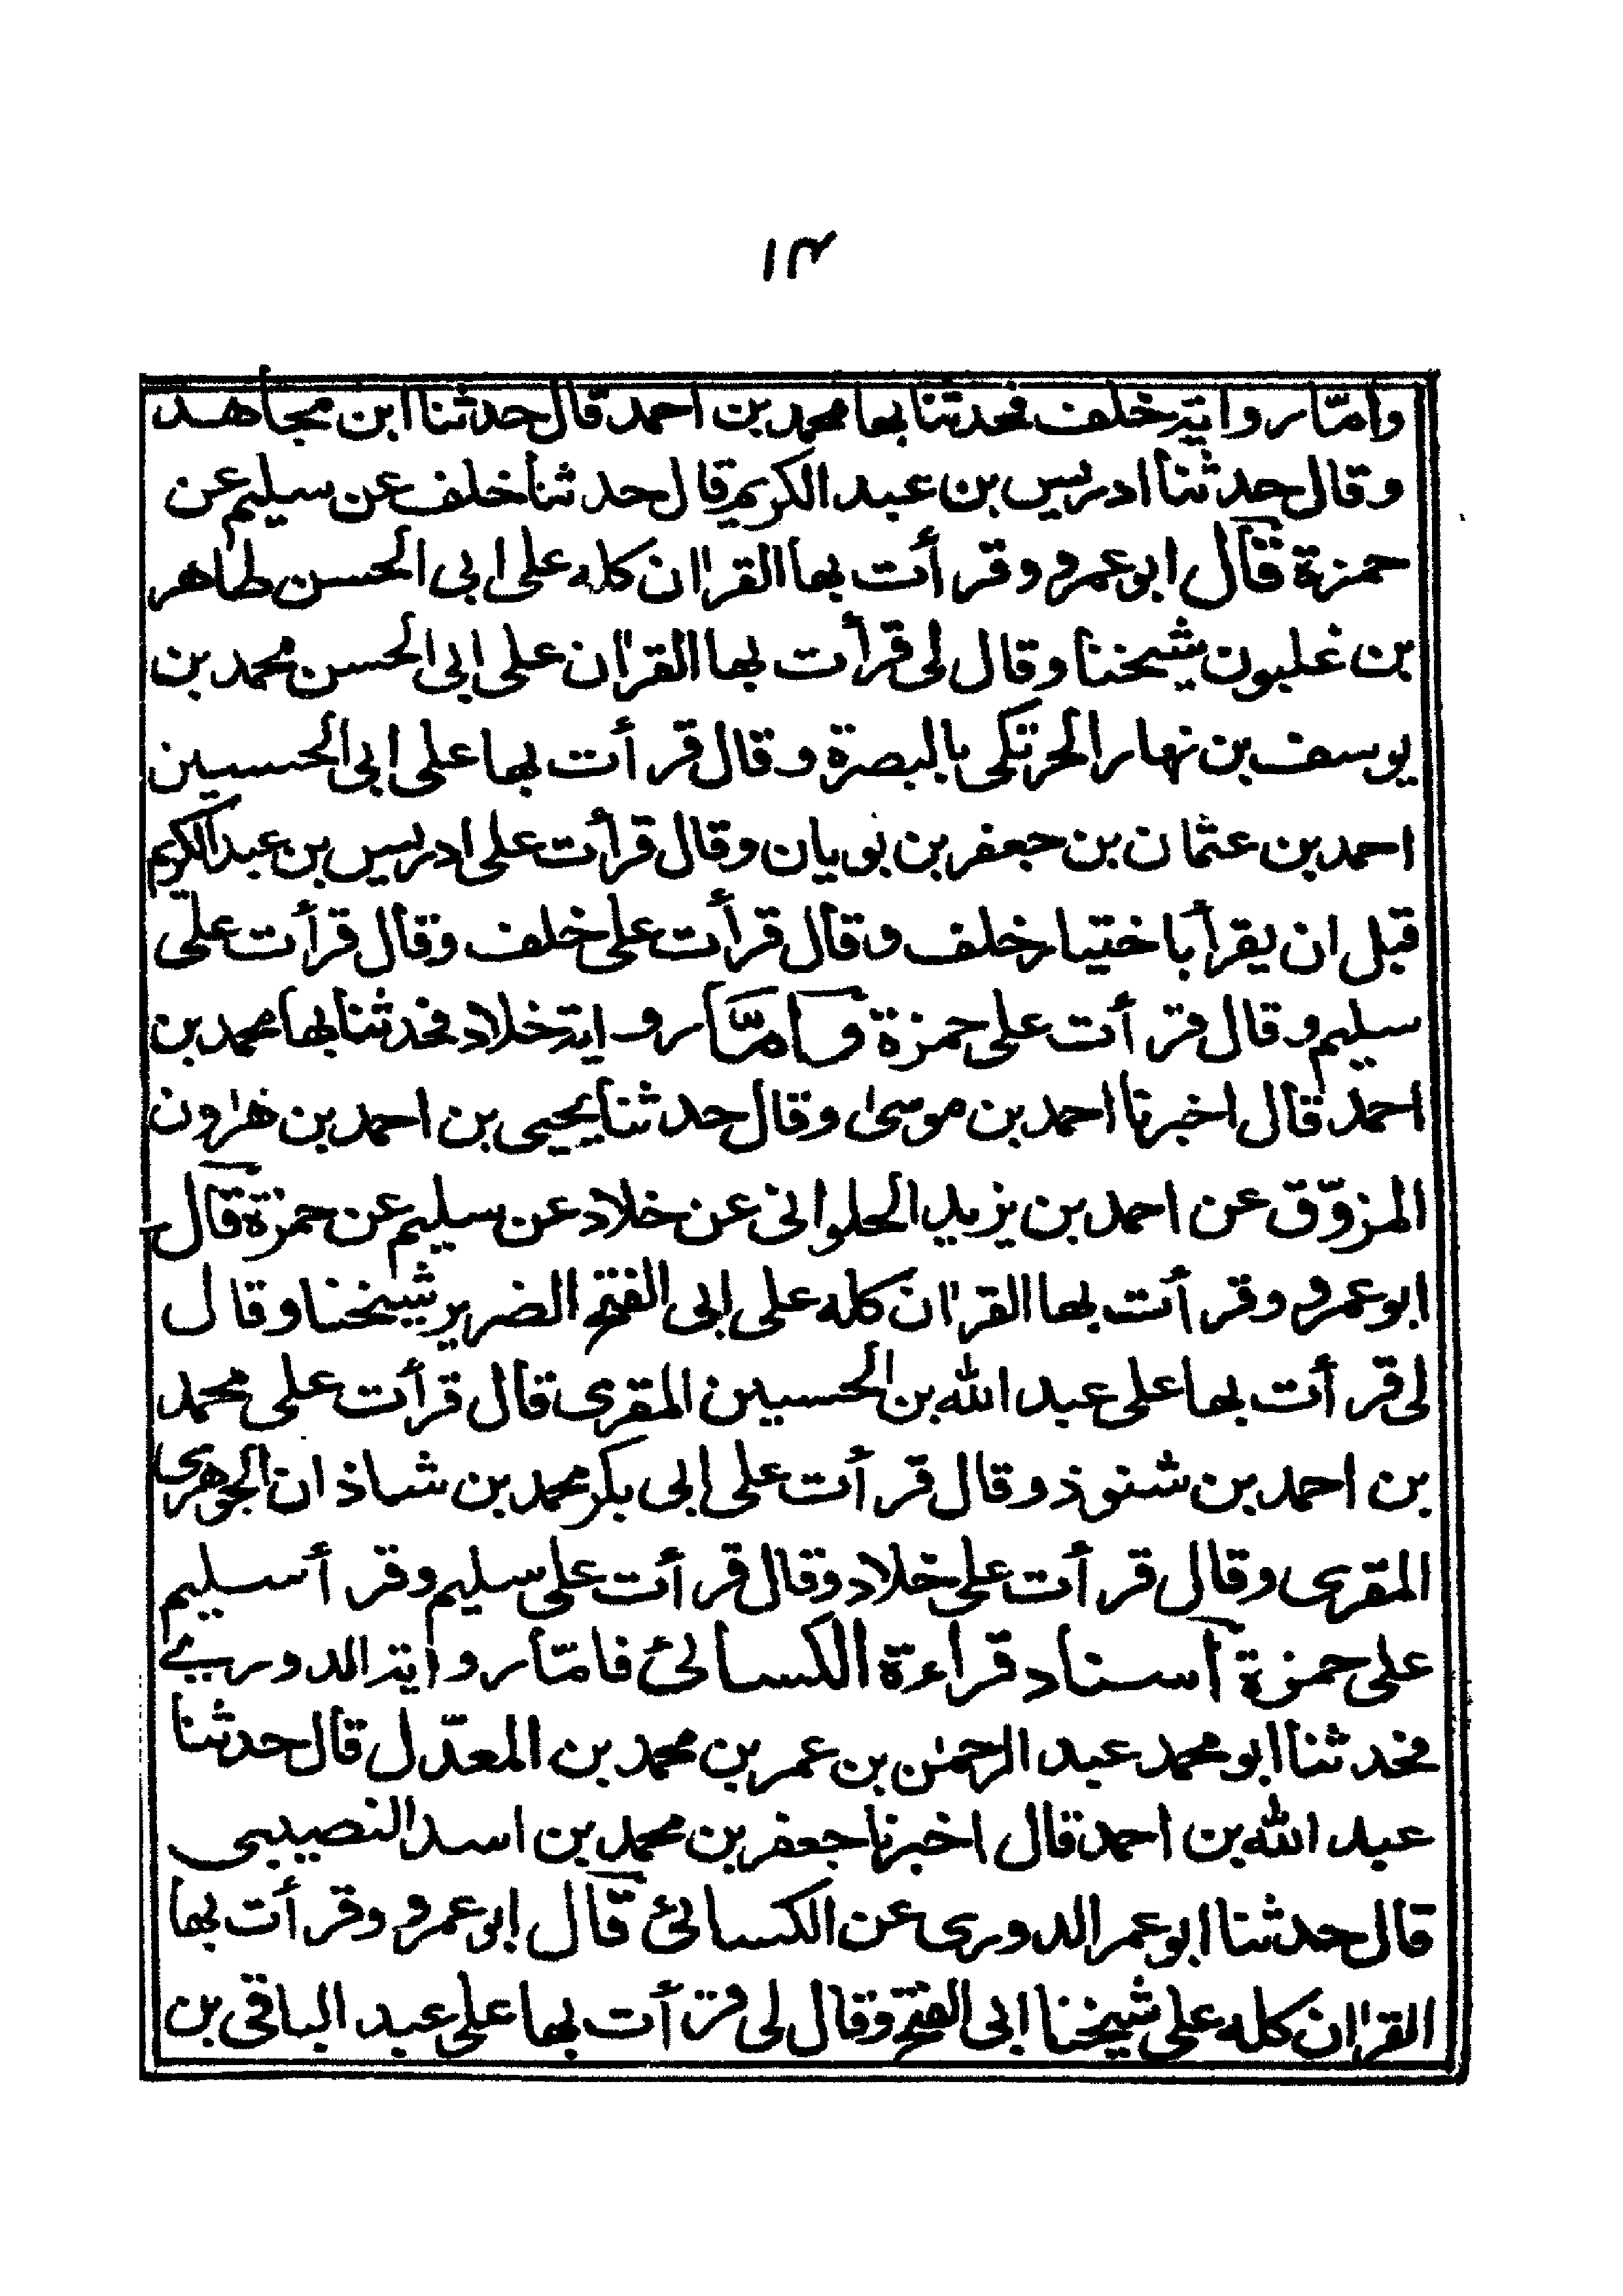 ١٣
وامّا روايته خلف فحدثنا بها محمد بن احمد قال حدثنا ابن مجاهد
وقال حدثنا ادريس بن عبد الكريم قال حدثنا خلف عن سليم عن
حمزة قال ابو عمرو وقرأت بها القرٰان كله على ابى الحسن طاهر
بن غلبون شيخنا وقال لى قرأت بها القرٰان على ابى الحسن محمد بن
يوسف بن نهار الحرتكى بالبصرة وقال قرأت بها على ابى الحسين
احمد بن عثمان بن جعفر بن بويان وقال قرأت على ادريس بن عبد الكريم
قبل ان يقرأ باختيار خلف وقال قرأت على خلف وقال قرأت على
سليم وقال قرأت على حمزة وامّا روايته خلاد فحدثنا بها محمد بن
احمد قال اخبرنا احمد بن موسىٰ وقال حدثنا يحيى بن احمد بن هٰرون
المزوّق عن احمد بن يزيد الحلوانى عن خلاد عن سليم عن حمزة قال
ابو عمرو وقرأت بها القرٰان كله على ابى الفتح الضرير شيخنا وقال
لى قرأت بها على عبد الله بن الحسين المقرى قال قرأت على محمد
بن احمد بن شنوذ وقال قرأت على ابى بكر محمد بن شاذان الجوهرى
المقرى وقال قرأت على خلاد وقال قرأت على سليم وقرأ سليم
على حمزة اسناد قراءة الكسائئ فامّا روايته الدورى
فحدثنا ابو محمد عبد الرحمٰن بن عمر بن محمد بن المعدّل قال حدثنا
عبد الله بن احمد قال اخبرنا جعفر بن محمد بن اسد النصيبى
قال حدثنا ابو عمر الدورى عن الكسائئ قال ابو عمرو وقرأت بها
القرٰان كله على شيخنا ابى الفتح وقال لى قرأت بها على عبد الباقى بن